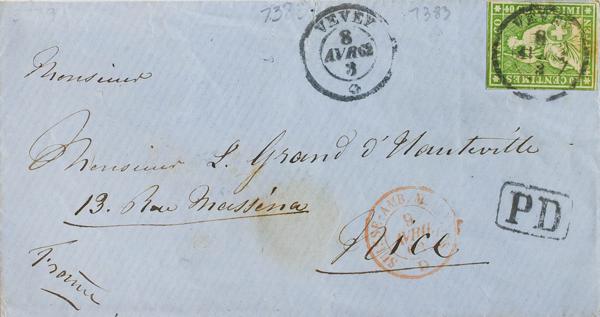 1383 1383
VEVEY
8
AVR 62
3
40 CENTIMES
Monsieur
Monsieur L. Grand d'Hauteville
13. Rue Masséna
Nice
France
PD
9
AVRIL
D